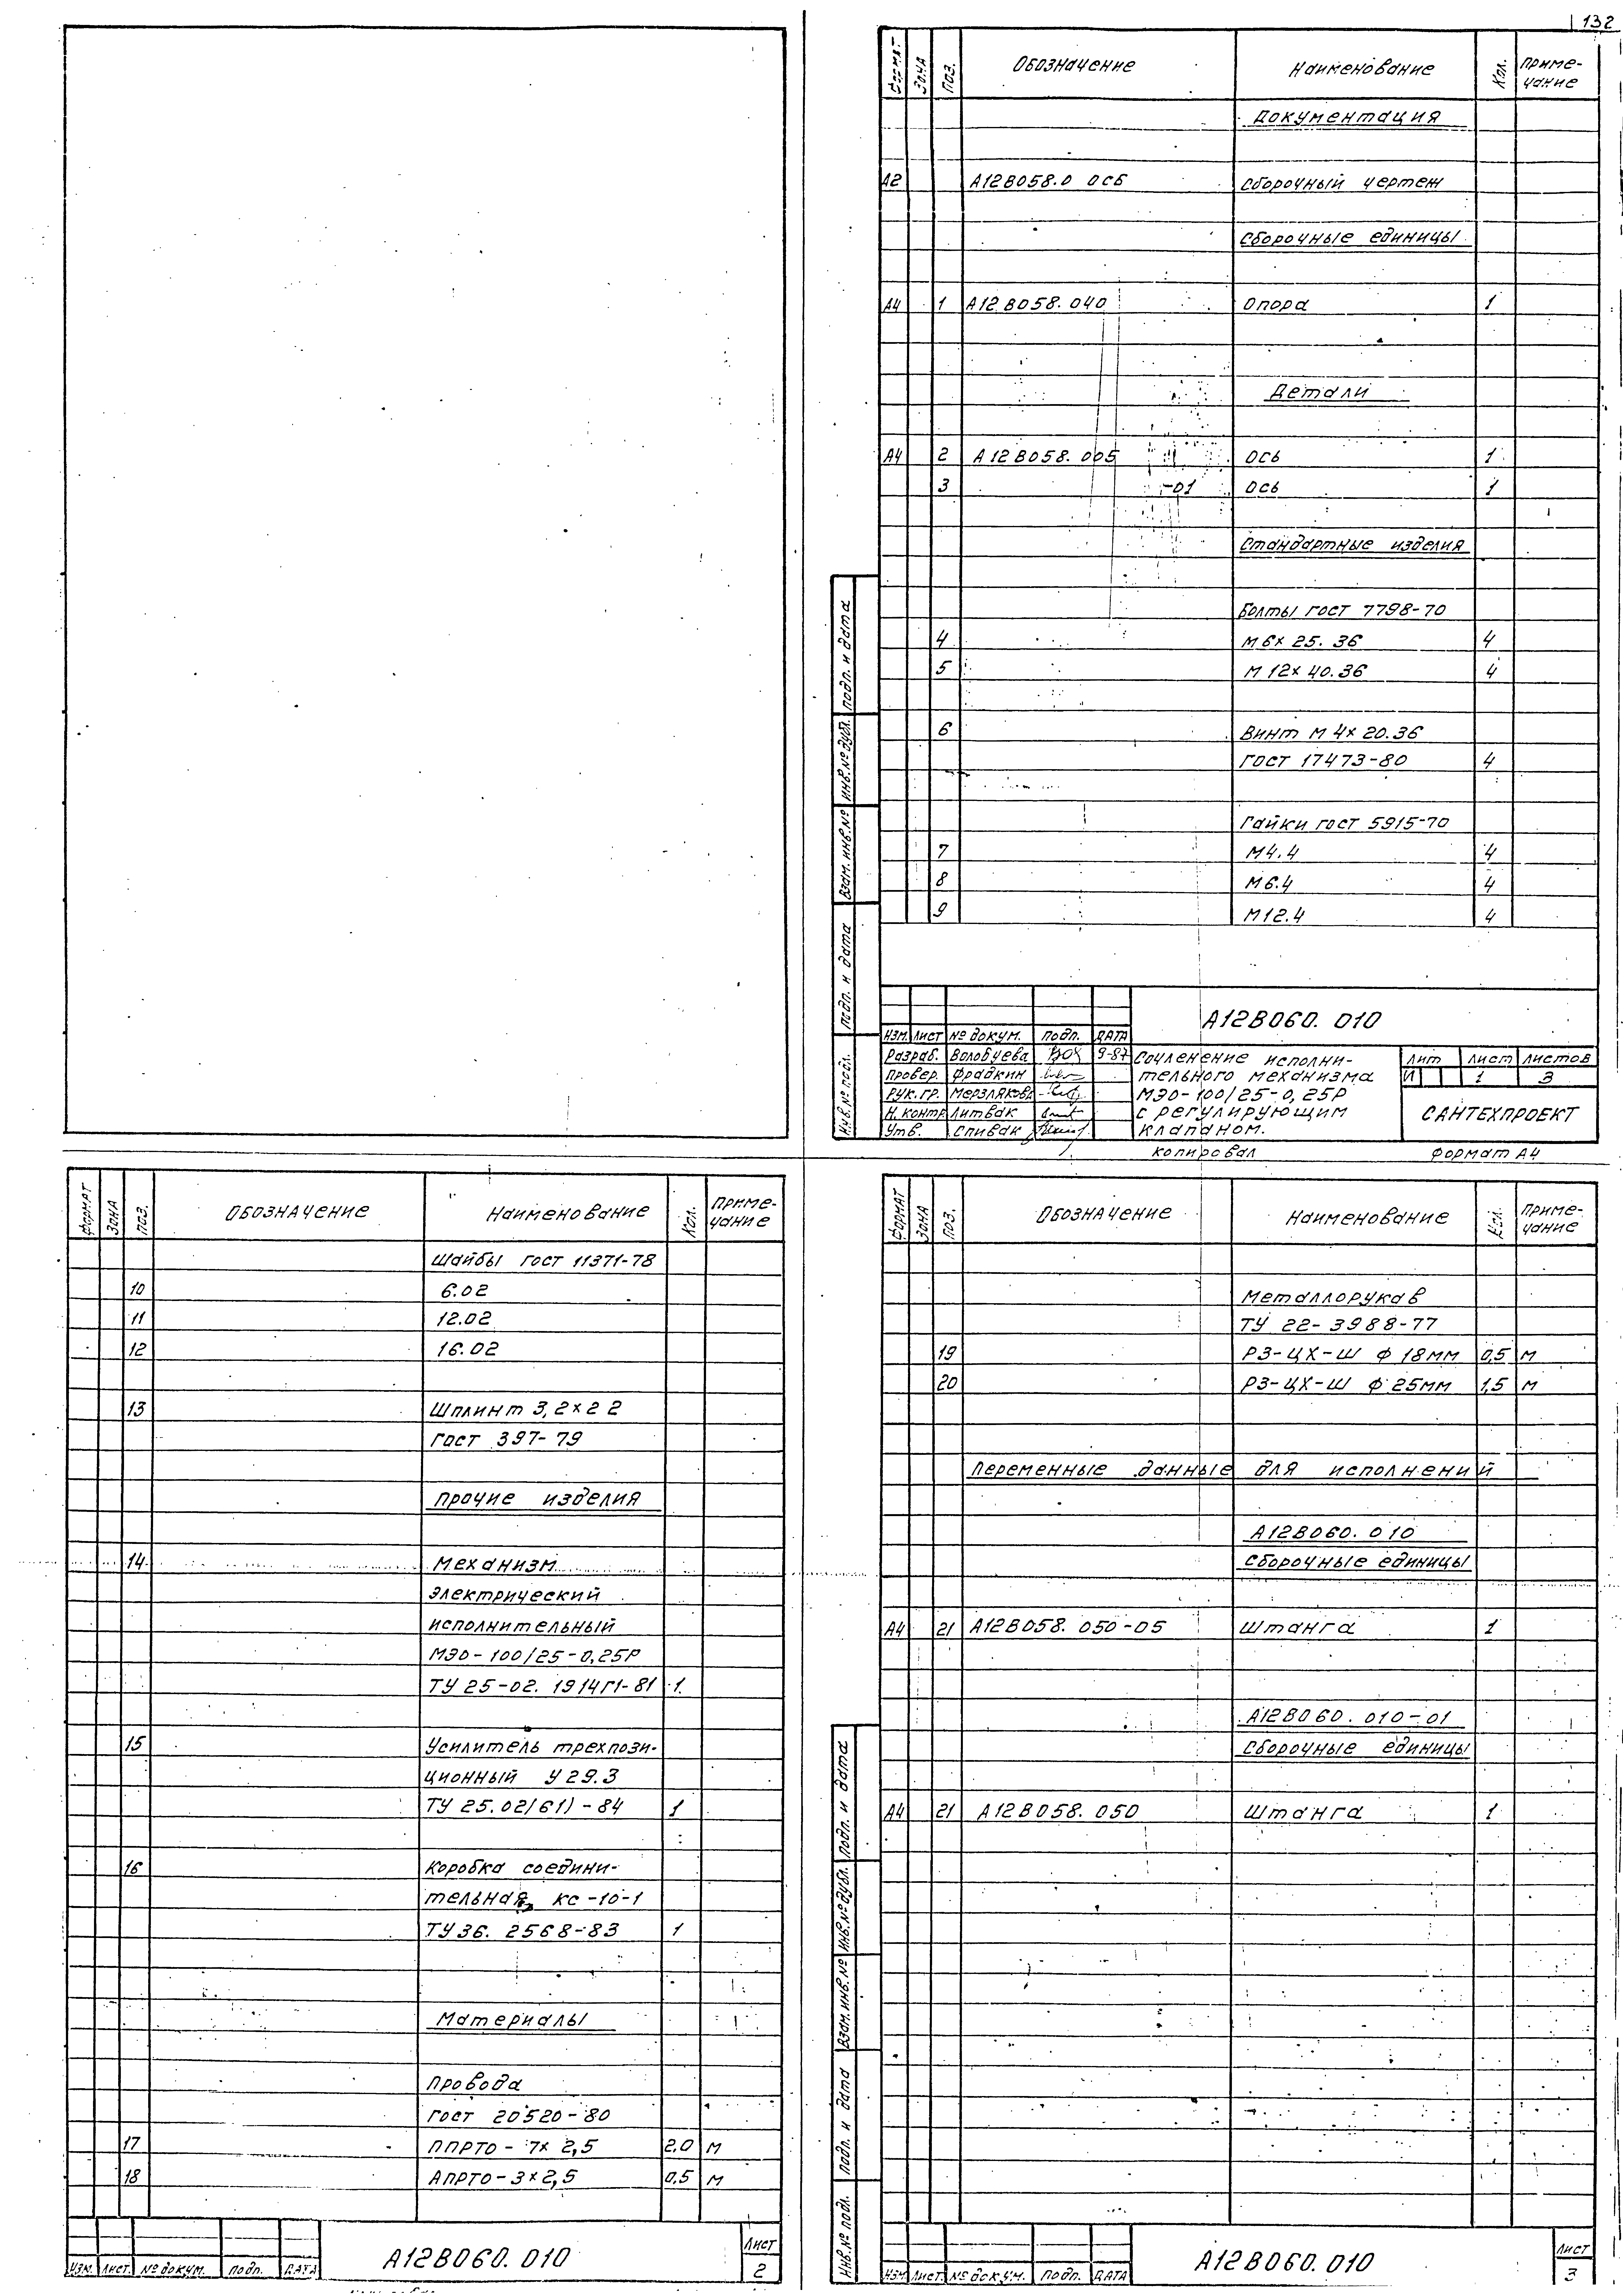 132
Формат Зона Поз. Обозначение Наименование Кол. Приме-
чание
Документация
А2 А12В058.0 00СБ Сборочный чертеж
Сборочные единицы
А4 1 А12В058.040 Опора 1
Детали
А4 2 А12В058.005 Ось 1
3 -01 Ось 1
Стандартные изделия
Болты гост 7798-70
4 М6х 25. 36 4
5 М12х 40.36 4
6 Винт М 4х 20.36
гост 17473-80 4
Гайки гост 5915-70
7 М4.4 4
8 М6.4 4
9 М12.4 4
Подп. и дата
Инв.№ дубл.
Взам. инв.№
Подп. и дата
Инв.№ подл.
А12В060. 010
Изм. Лист № докум. Подп. Дата
Разраб. Волобуева 9-87
Провер. Фрадкин
Рук. гр. Мерзлякова
Н. контр Литвак
Утв. Спивак
Сочленение исполни-
тельного механизма
МЭО-100/25-0,25Р
с регулирующим
клапаном.
Лит Лист Листов
И 1 3
САНТЕХПРОЕКТ
Копировал Формат А4
Формат Зона Поз. Обозначение Наименование Кол. Приме-
чание
Шайбы гост 11371-78
10 6.02
11 12.02
12 16.02
13 Шплинт 3,2х22
гост 397-79
Прочие изделия
14 Механизм
электрический
исполнительный
МЭО-100/25-0,25Р
ТУ 25-02. 1914П-81 1
15 Усилитель трехпози-
ционный У29.3
ТУ 25.02/61)-84 1
16 Коробка соедини-
тельная КС-10-1
ТУ36. 2568-83 1
Материалы
Провода
гост 20520-80
17 ППРТО- 7х 2,5 2.0 м
18 АПРТО-3х2,5 0,5 м
Изм. Лист. № докум. Подп. Дата
А12В060. 010
Лист
2
Формат Зона Поз. Обозначение Наименование Кол. Приме-
чание
Металлорукав
ТУ 22-3988-77
19 РЗ-ЦХ-Ш ф 18мм 0,5 м
20 РЗ-ЦХ-Ш ф 25мм 1,5 м
Переменные данные для исполнений
А12В060. 010
Сборочные единицы
А4 21 А12В058. 050-05 Штанга 1
А12В060. 010-01
Сборочные единицы
А4 21 А12В058. 050 Штанга 1
Подп. и дата
Инв.№ дубл.
Взам. инв.№
Подп. и дата
Инв.№ подл.
Изм. Лист. № докум. Подп. Дата
А12В060. 010
Лист
3